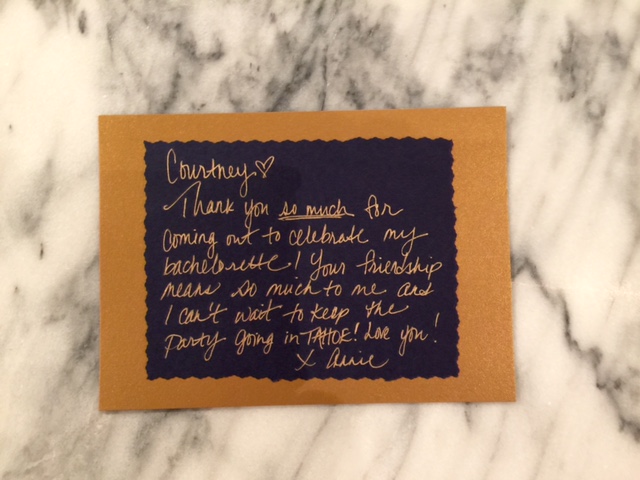 Courtney ♡
Thank you so much for
coming out to celebrate my
bachelorette! Your friendship
means so much to me and
I can't wait to keep the
party going in TAHOE! Love you!
X Annie